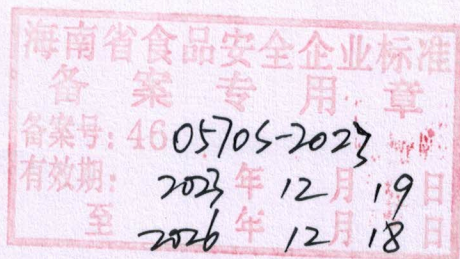 海南省食品安全企业标准
备案专用章
备案号：46 0570S-2023
有效期：2023年12月19日
至2026年12月18日